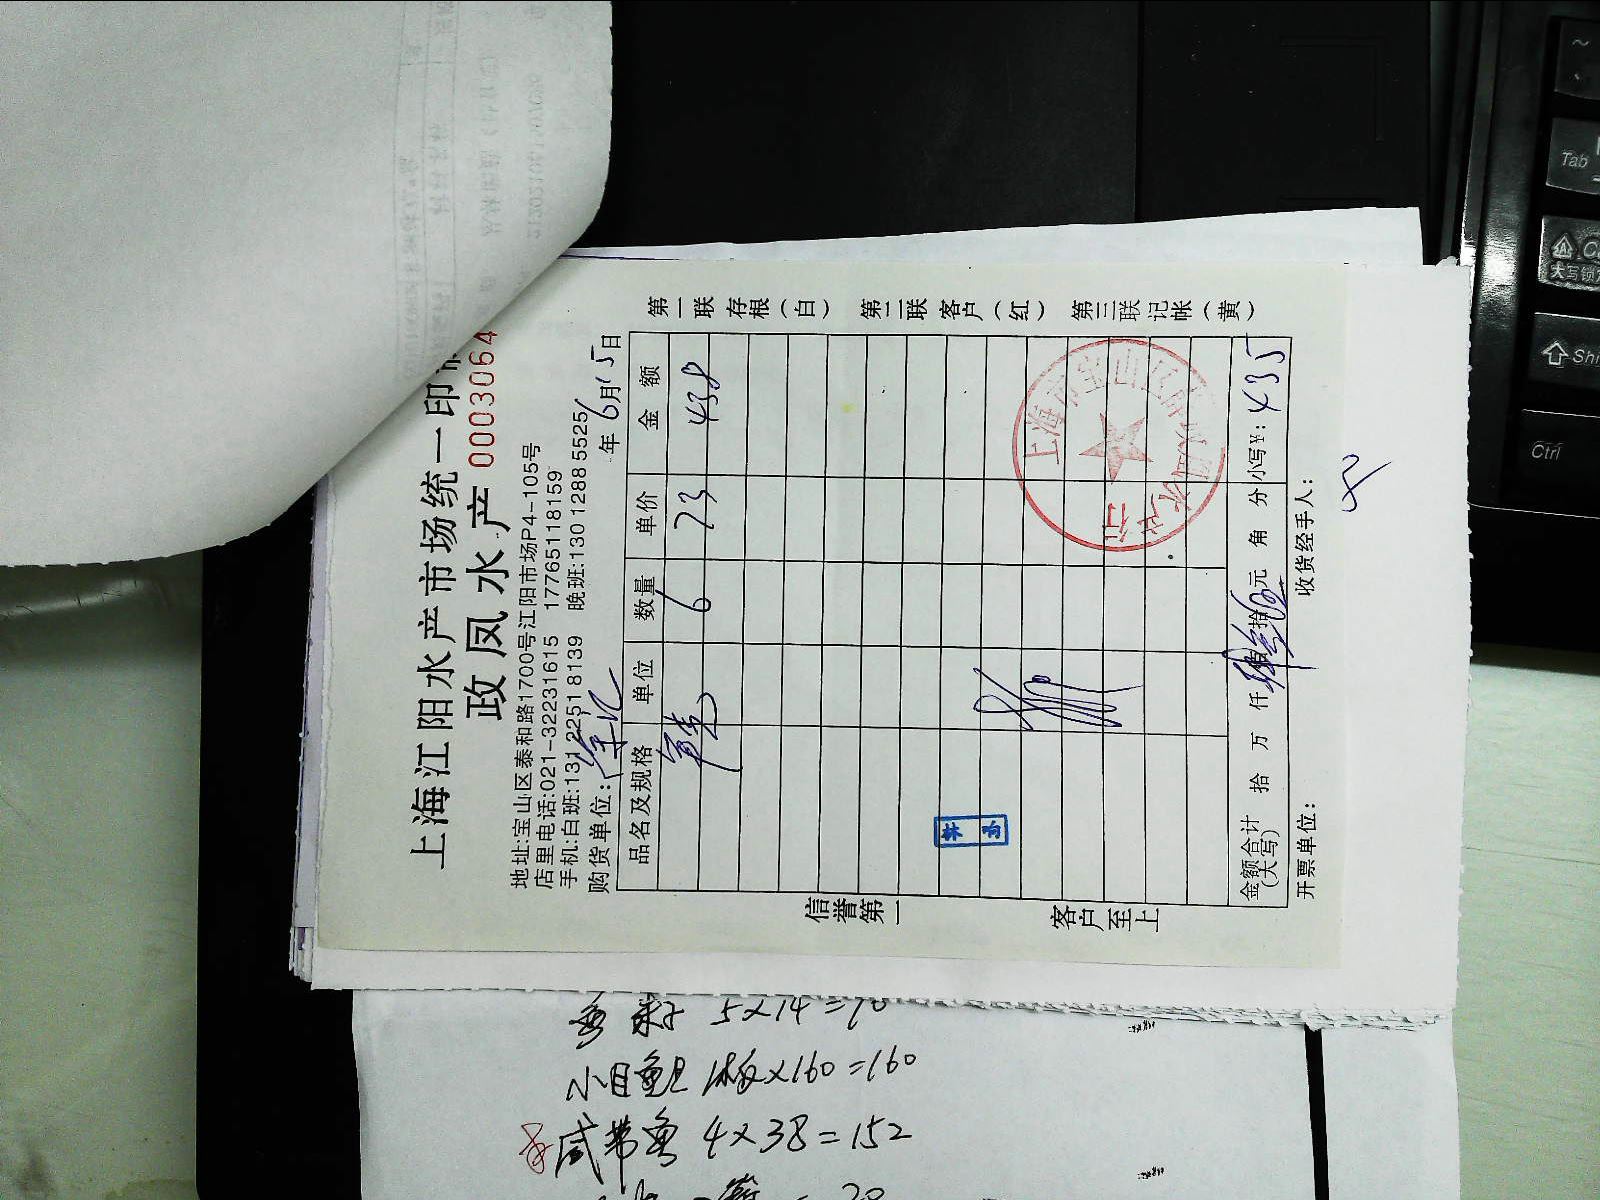 第一联 存根(白) 第二联 客户(红) 第三联 记帐(黄)
上海江阳水产市场统一印
政凤水产 0003064
地址:宝山区泰和路1700号江阳市场P4-105号
店里电话:021-32231615 17765118159
手机:白班:131 2251 8139 晚班:130 1288 5525
购货单位: 徐记 年 6月15日
品名及规格 单位 数量 单价 金额
6 73 438
金额合计(大写) 拾 万 仟 佰 拾 元 角 分 小写¥: 435
开票单位: 收货经手人:
信誉第一 客户至上
5×14=70
小目鱼 ×160=160
咸带鱼 4×38=152
Tab
大写锁定
Shi
Ctrl